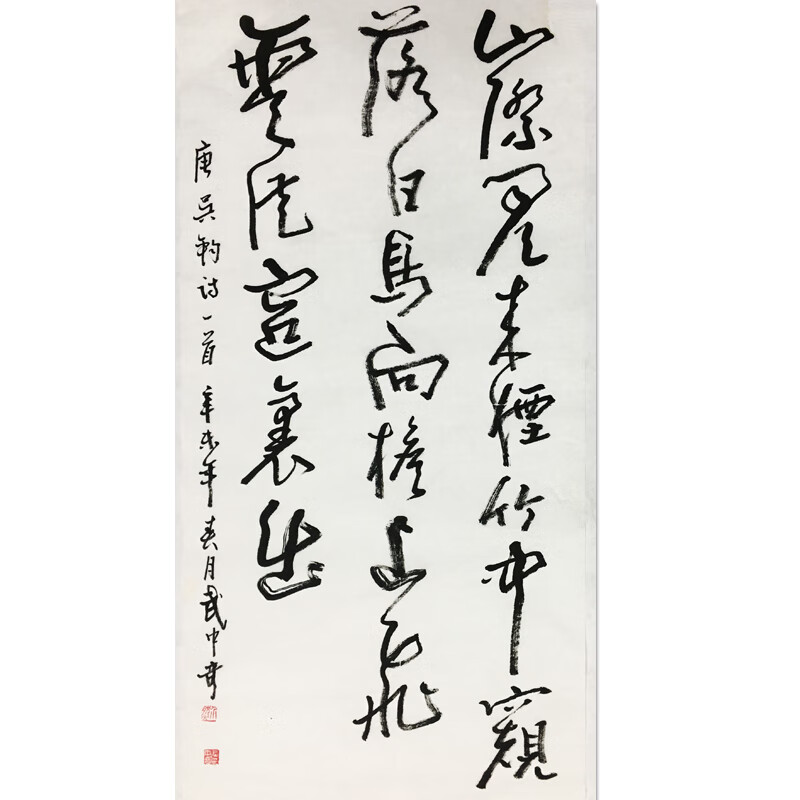 山際見来煙竹中窺
落日鳥向檐上飛
雲從窗裏出
唐吴鈞诗一首 辛未年春月武中奇